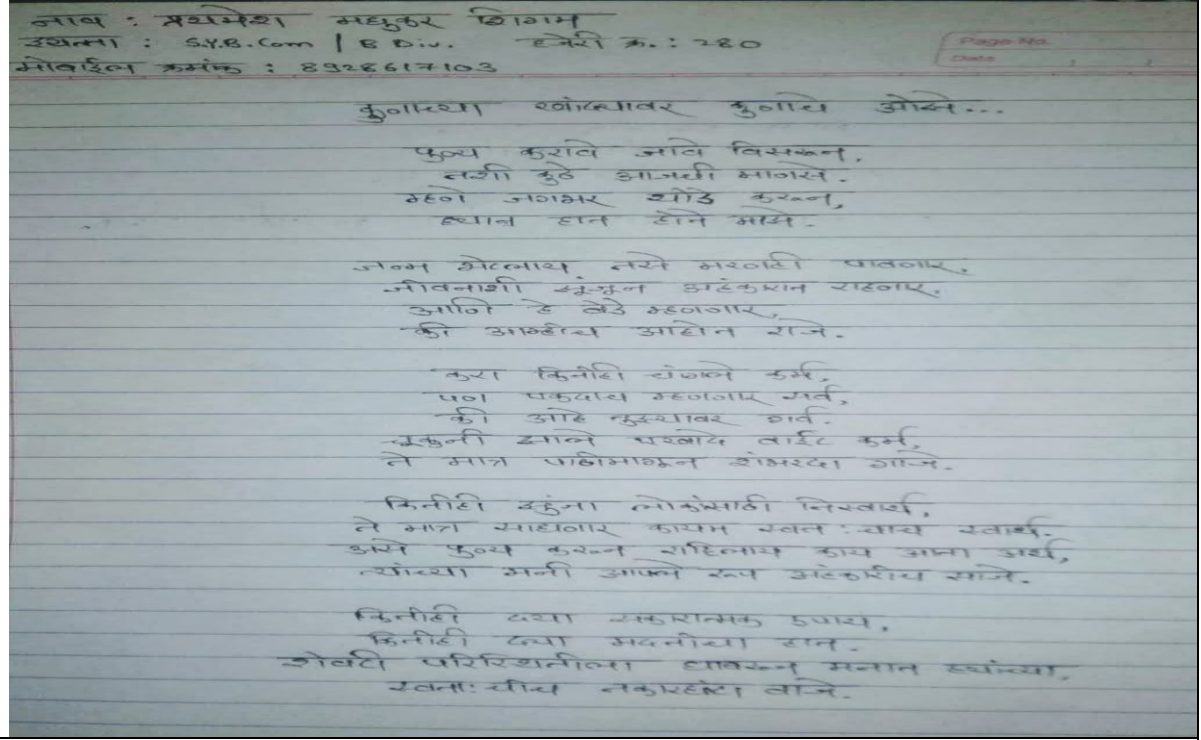 नाव : प्रथमेश मधुकर शिगम
इयत्ता : S.Y.B.Com | B Div. हजेरी क्र. : 280
Page No.
Date
मोबाईल क्रमांक : 8928617103
कुणाच्या खांद्यावर कुणाचे ओझे...
पुण्य करावे जावे विसरून,
तशी कुठे आजची माणसे.
म्हणे जगभर थोडे करून,
ह्यात हात होते माझे.
जन्म भेटलाय तसे मरणही पावणार,
जीवनाशी झुंजून अहंकारात राहणार,
आणि हे वेडे म्हणणार,
की आम्हीच आहोत राजे.
करा कितीही चांगले कर्म,
पण एकदाच म्हणणार सर्व,
की आहे तुझ्यावर गर्व.
चूकुनी झाले एखादे वाईट कर्म,
ते मात्र पाठीमागून शंभरदा गाजे.
कितीही झुंजा लोकांसाठी निस्वार्थ,
ते मात्र साधणार कायम स्वत:चाच स्वार्थ.
असे पुण्य करून राहिलाय काय आता अर्थ,
त्यांच्या मनी आपले रूप अहंकारीच साजे.
कितीही द्या सकारात्मक उपाय,
कितीही द्या मदतीचा हात.
शेवटी परिस्थितीला घाबरून मनात ह्यांच्या,
स्वता:चीच नकारघंटा वाजे.